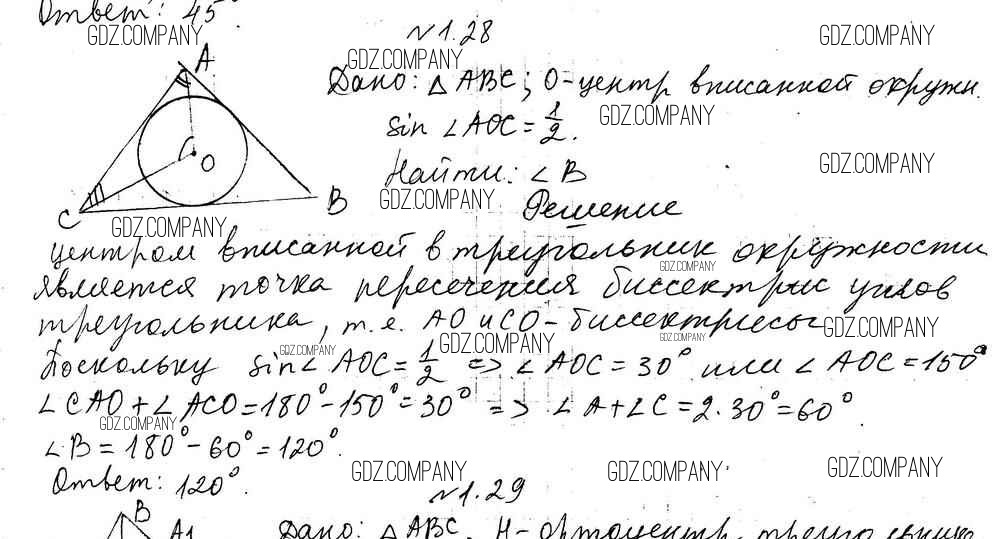 Ответ: 45°
GDZ.COMPANY GDZ.COMPANY
№1.28
GDZ.COMPANY
A
Дано: △ABC; O-центр вписанной окружн.
sin ∠AOC = 1/2.
GDZ.COMPANY
O
Найти: ∠B
GDZ.COMPANY
GDZ.COMPANY
C B
Решение
GDZ.COMPANY
центром вписанной в треугольник окружности
GDZ.COMPANY
является точка пересечения биссектрис углов
треугольника, т.е. AO и CO-биссектрисы
GDZ.COMPANY
GDZ.COMPANY GDZ.COMPANY GDZ.COMPANY
Поскольку sin∠AOC = 1/2 => ∠AOC = 30° или ∠AOC = 150°
∠CAO + ∠ACO = 180° - 150° = 30° => ∠A + ∠C = 2·30° = 60°
GDZ.COMPANY
∠B = 180° - 60° = 120°.
GDZ.COMPANY GDZ.COMPANY GDZ.COMPANY
Ответ: 120°.
№1.29
B
A1
Дано: △ABC, H-ортоцентр